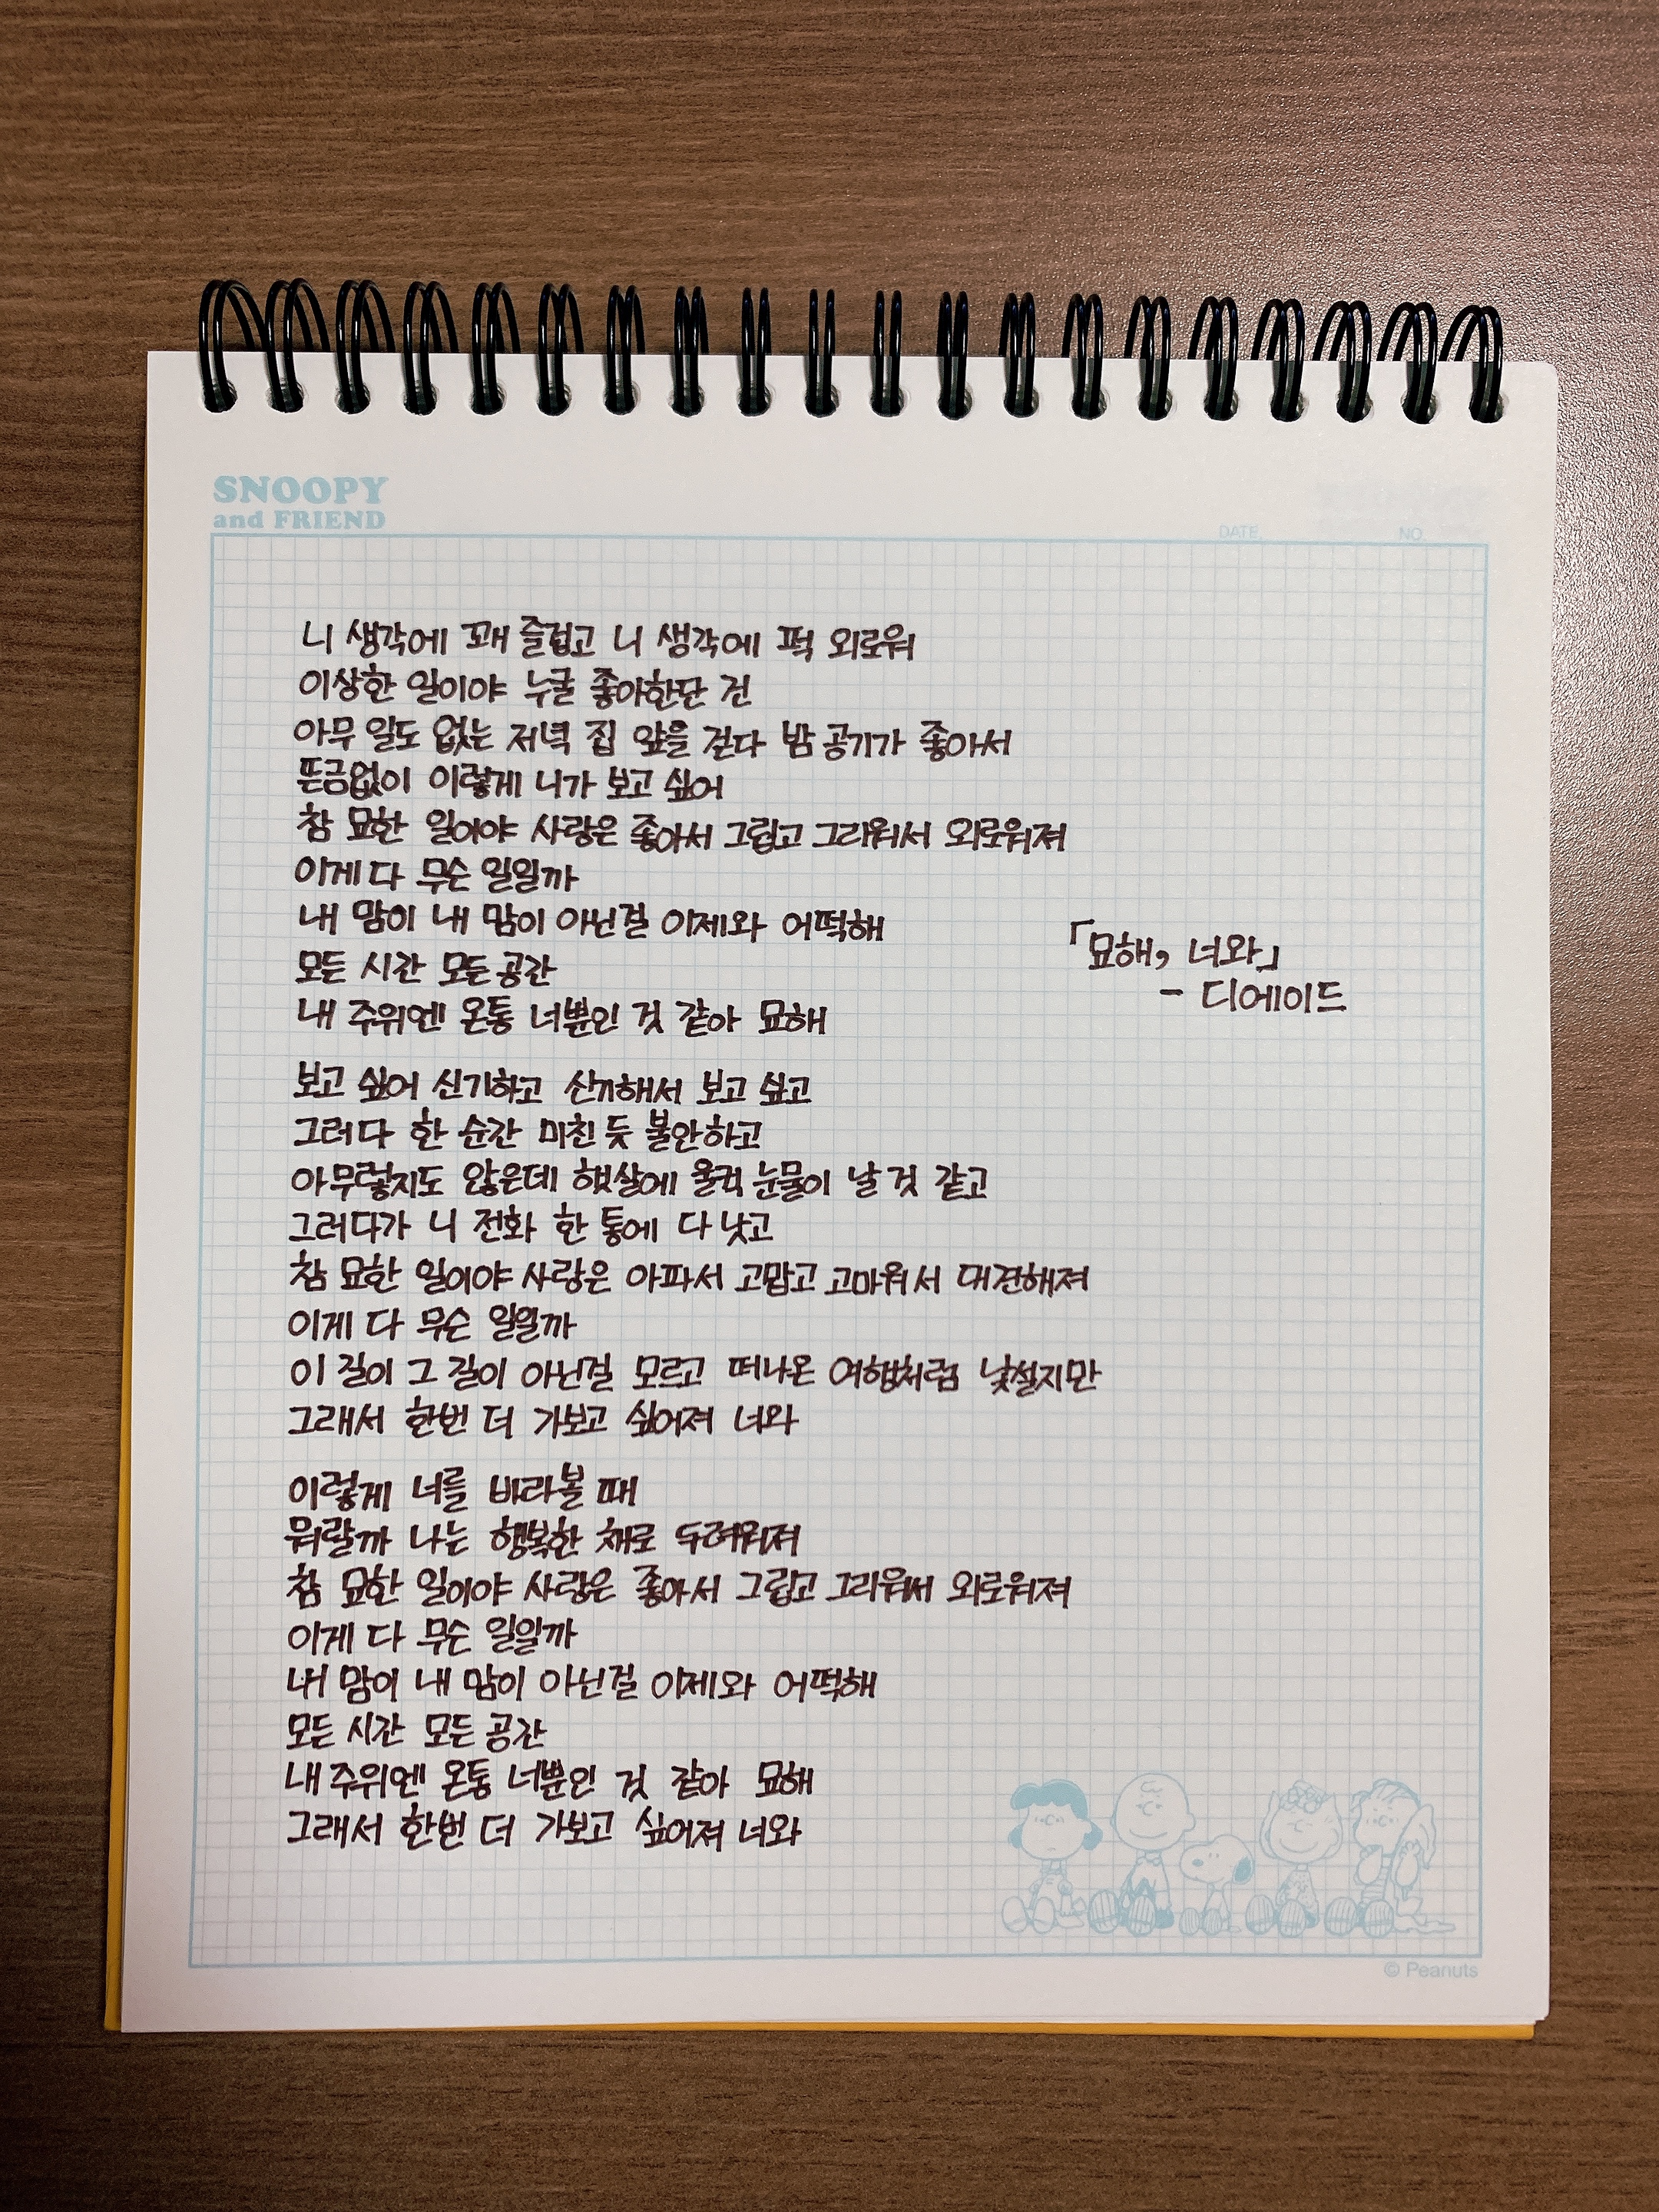 SNOOPY
and FRIEND
DATE.
NO.
니 생각에 꽤 즐겁고 니 생각에 퍽 외로워
이상한 일이야 누굴 좋아한단 건
아무 일도 없는 저녁 집 앞을 걷다 밤 공기가 좋아서
뜬금없이 이렇게 니가 보고 싶어
참 묘한 일이야 사랑은 좋아서 그립고 그리워서 외로워져
이게 다 무슨 일일까
내 맘이 내 맘이 아닌걸 이제와 어떡해
모든 시간 모든 공간
내 주위엔 온통 너뿐인 것 같아 묘해
「묘해, 너와」
- 디에이드
보고 싶어 신기하고 신기해서 보고 싶고
그러다 한 순간 미친 듯 불안하고
아무렇지도 않은데 햇살에 울컥 눈물이 날 것 같고
그러다가 니 전화 한 통에 다 낫고
참 묘한 일이야 사랑은 아파서 고맙고 고마워서 대견해져
이게 다 무슨 일일까
이 길이 그 길이 아닌걸 모르고 떠나온 여행처럼 낯설지만
그래서 한번 더 가보고 싶어져 너와
이렇게 너를 바라볼 때
뭐랄까 나는 행복한 채로 두려워져
참 묘한 일이야 사랑은 좋아서 그립고 그리워서 외로워져
이게 다 무슨 일일까
내 맘이 내 맘이 아닌걸 이제와 어떡해
모든 시간 모든 공간
내 주위엔 온통 너뿐인 것 같아 묘해
그래서 한번 더 가보고 싶어져 너와
© Peanuts